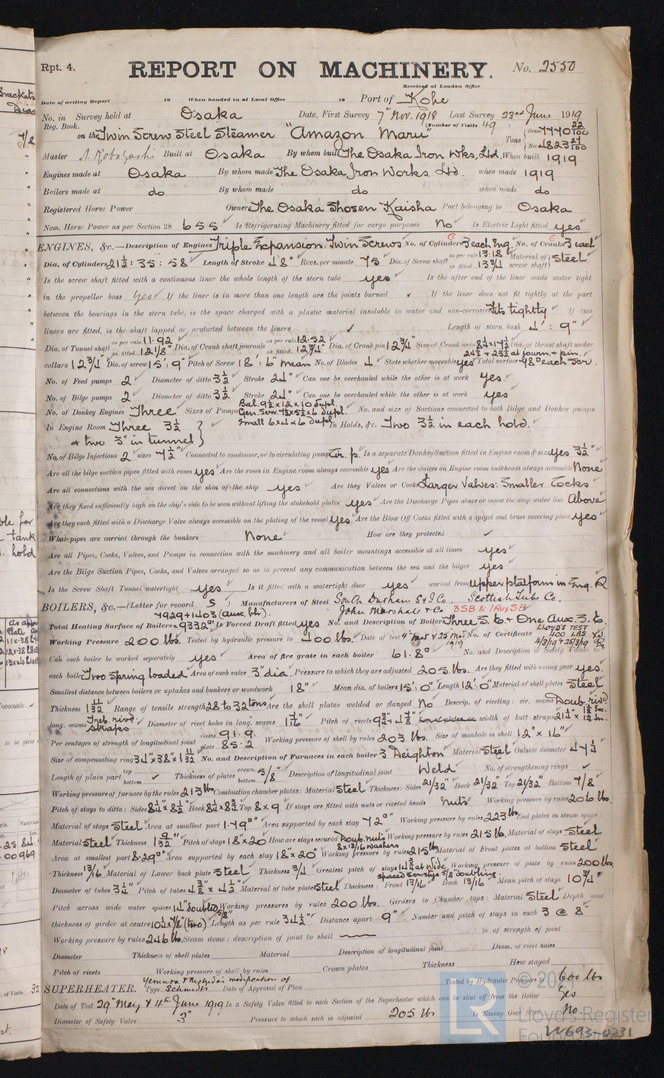 Rpt. 4.
REPORT ON MACHINERY.
No. 2550
Received at London Office
Date of writing Report 19 When handed in at Local Office 19 Port of Kobe
No. in Survey held at Osaka Date, First Survey 7 Nov. 1918 Last Survey 23rd June 1919
Reg. Book. (Number of Visits 49
on the Twin Screw Steel Steamer "Amazon Maru"
Master Built at Osaka By whom built The Osaka Iron Wks, Ltd. When built 1919
Engines made at Osaka By whom made The Osaka Iron Works, Ltd. when made 1919
Boilers made at do By whom made do when made do
Registered Horse Power Owners The Osaka Shosen Kaisha Port belonging to Osaka
Nom. Horse Power as per Section 28 655 Is Refrigerating Machinery fitted for cargo purposes No Is Electric Light fitted yes
ENGINES, &c.—Description of Engines Triple Expansion. Twin Screws No. of Cylinders 3 each Eng. No. of Cranks 3 each
Dia. of Cylinders 21½ : 35 : 58 Length of Stroke 48" Revs. per minute 75 Dia. of Screw shaft as per rule 13.18 as fitted 13¾ Material of screw shaft steel
Is the screw shaft fitted with a continuous liner the whole length of the stern tube yes Is the after end of the liner made water tight
in the propeller boss yes If the liner is in more than one length are the joints burned If the liner does not fit tightly at the part
between the bearings in the stern tube, is the space charged with a plastic material insoluble in water and non-corrosive fits tightly If two
liners are fitted, is the shaft lapped or protected between the liners Length of stern bush 4' : 9"
Dia. of Tunnel shaft as per rule 11.92 as fitted 12⅛" Dia. of Crank shaft journals as per rule 12.52 as fitted 12¾" Dia. of Crank pin 12¾" Size of Crank webs Dia. of thrust shaft under
collars 12¾" Dia. of screw 15' : 9" Pitch of Screw 18' : 6" mean No. of Blades 4 State whether moveable yes Total surface 48 □' each scr.
No. of Feed pumps 2 Diameter of ditto 3½ Stroke 24" Can one be overhauled while the other is at work yes
No. of Bilge pumps 2 Diameter of ditto 3½ Stroke 24" Can one be overhauled while the other is at work yes
No. of Donkey Engines Three Sizes of Pumps Bal. 9½ x 12 x 10 dupl. No. and size of Suctions connected to both Bilge and Donkey pumps
In Engine Room Three 3½ Small 6 x 4 x 6 dupl. In Holds, &c. Two 3½ in each hold.
& two 3" in tunnel
No. of Bilge Injections 2 sizes 7½" Connected to condenser, or to circulating pump Cir. p. Is a separate Donkey Suction fitted in Engine room & size yes 3½"
Are all the bilge suction pipes fitted with roses yes Are the roses in Engine room always accessible yes Are the sluices on Engine room bulkheads always accessible None
Are all connections with the sea direct on the skin of the ship yes Are they Valves or Cocks Larger Valves: Smaller Cocks
Are they fixed sufficiently high on the ship's side to be seen without lifting the stokehold plates yes Are the Discharge Pipes above or below the deep water line Above
Are they each fitted with a Discharge Valve always accessible on the plating of the vessel yes Are the Blow Off Cocks fitted with a spigot and brass covering plate yes
What pipes are carried through the bunkers None How are they protected
Are all Pipes, Cocks, Valves, and Pumps in connection with the machinery and all boiler mountings accessible at all times yes
Are the Bilge Suction Pipes, Cocks, and Valves arranged so as to prevent any communication between the sea and the bilges yes
Is the Screw Shaft Tunnel watertight yes Is it fitted with a watertight door yes worked from upper platform in Eng. R
BOILERS, &c.—(Letter for record S) Manufacturers of Steel South Durham St I Co. Scottish Tube Co.
7929 + 1403 (aux. blr.) John Marshall & Co 3SB & 1AuxSB
Total Heating Surface of Boilers 9332 Is Forced Draft fitted yes No. and Description of Boilers Three S.E. & One Aux. S.E.
Working Pressure 200 lbs. Tested by hydraulic pressure to 400 lbs. Date of test No. of Certificate LLOYD'S TEST 400 LBS
Can each boiler be worked separately yes Area of fire grate in each boiler 61.8 □' No. and Description of Safety Valves to
each boiler Two Spring loaded Area of each valve 3" dia. Pressure to which they are adjusted 205 lbs Are they fitted with easing gear yes
Smallest distance between boilers or uptakes and bunkers or woodwork 18" Mean dia. of boilers 15' : 0" Length 12' : 0" Material of shell plates Steel
Thickness 1 11/32 Range of tensile strength 28 to 32 tons Are the shell plates welded or flanged No Descrip. of riveting: cir. seams Doub. riv.
long. seams Treb. riv. straps Diameter of rivet holes in long. seams Pitch of rivets width of butt straps
Per centages of strength of longitudinal joint rivets 91.9 plate 85.2 Working pressure of shell by rules 203 lbs. Size of manhole in shell 12" x 16"
Size of compensating ring No. and Description of Furnaces in each boiler 3 Deighton Material Steel Outside diameter
Length of plain part top bottom Thickness of plates crown bottom 5/8" Description of longitudinal joint Weld No. of strengthening rings
Working pressure of furnace by the rules 213 lb Combustion chamber plates: Material Steel Thickness: Sides 21/32" Back 21/32" Top 21/32" Bottom 7/8"
Pitch of stays to ditto: Sides 8¼ x 8½ Back 8¼ x 8½ Top 8 x 9 If stays are fitted with nuts or riveted heads nuts Working pressure by rules 206 lbs
Material of stays Steel Area at smallest part 1.79□" Area supported by each stay 72□" Working pressure by rules 223 lbs End plates in steam space:
Material Steel Thickness 1 9/32 Pitch of stays 18 x 20 How are stays secured Doub. nuts Working pressure by rules 215 lb Material of stays Steel
Area at smallest part 8.29□" Area supported by each stay 18 x 20" Working pressure by rules 215 lbs Material of Front plates at bottom Steel
Thickness 13/16 Material of Lower back plate Steel Thickness ¾ Greatest pitch of stays Working pressure of plate by rules 200 lbs
Diameter of tubes 3¼" Pitch of tubes 4¾ x 4½ Material of tube plates Steel Thickness: Front 13/16 Back 13/16 Mean pitch of stays 10¾"
Pitch across wide water spaces 14" doubled Working pressures by rules 200 lbs. Girders to Chamber tops: Material Steel Depth and
thickness of girder at centre 10½ x 7/8 (two) Length as per rule 34½" Distance apart 9" Number and pitch of stays in each 3 @ 8"
Working pressure by rules 246 lbs Steam dome; description of joint to shell % of strength of joint
Diameter Thickness of shell plates Material Description of longitudinal joint Diam. of rivet holes
Pitch of rivets Working pressure of shell by rules Crown plates Thickness How stayed
SUPERHEATER. Type Schmidts Date of Approval of Plan Tested by Hydraulic Pressure 600 lbs
Date of Test 29th May & 4th June 1919 Is a Safety Valve fitted to each Section of the Superheater which can be shut off from the Boiler Yes
Diameter of Safety Valve 3" Pressure to which each is adjusted 205 lbs Is Easing Gear No
W693-0231
Lloyd's Register